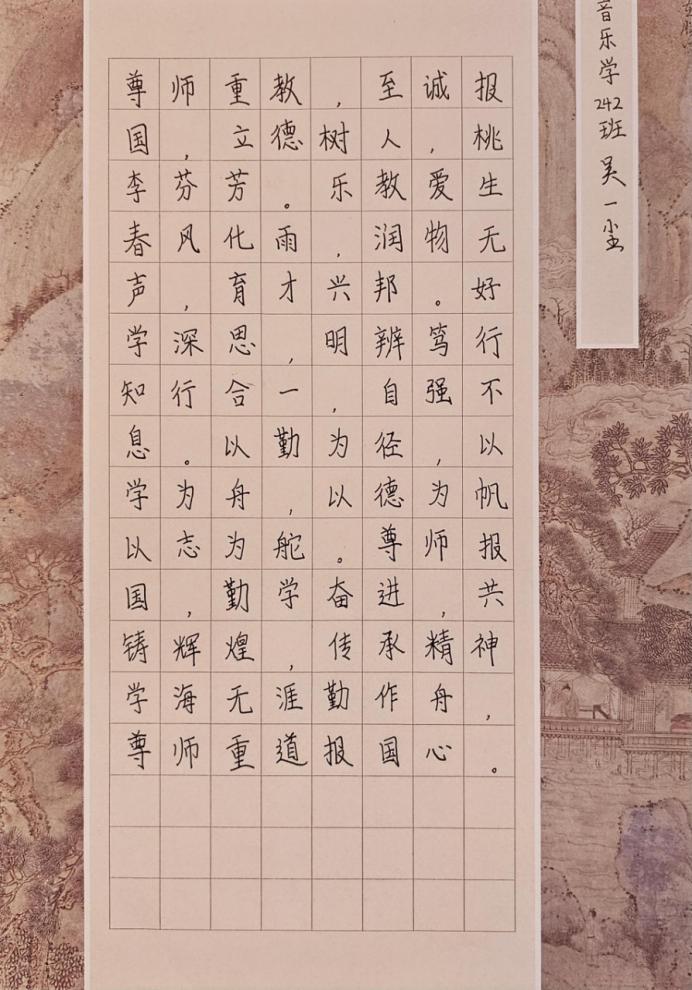 尊师重教，至诚报
国，立德树人，桃
李芬芳。乐教爱生
春风化雨，润物无
声，育才兴邦。好
学深思，明辨笃行
知行合一，自强不
息。以勤为径，以
学为舟，以德为帆
以志为舵。尊师报
国，勤学奋进，共
铸辉煌，传承精神
学海无涯勤作舟，
尊师重道报国心。
音乐学242班 吴一尘